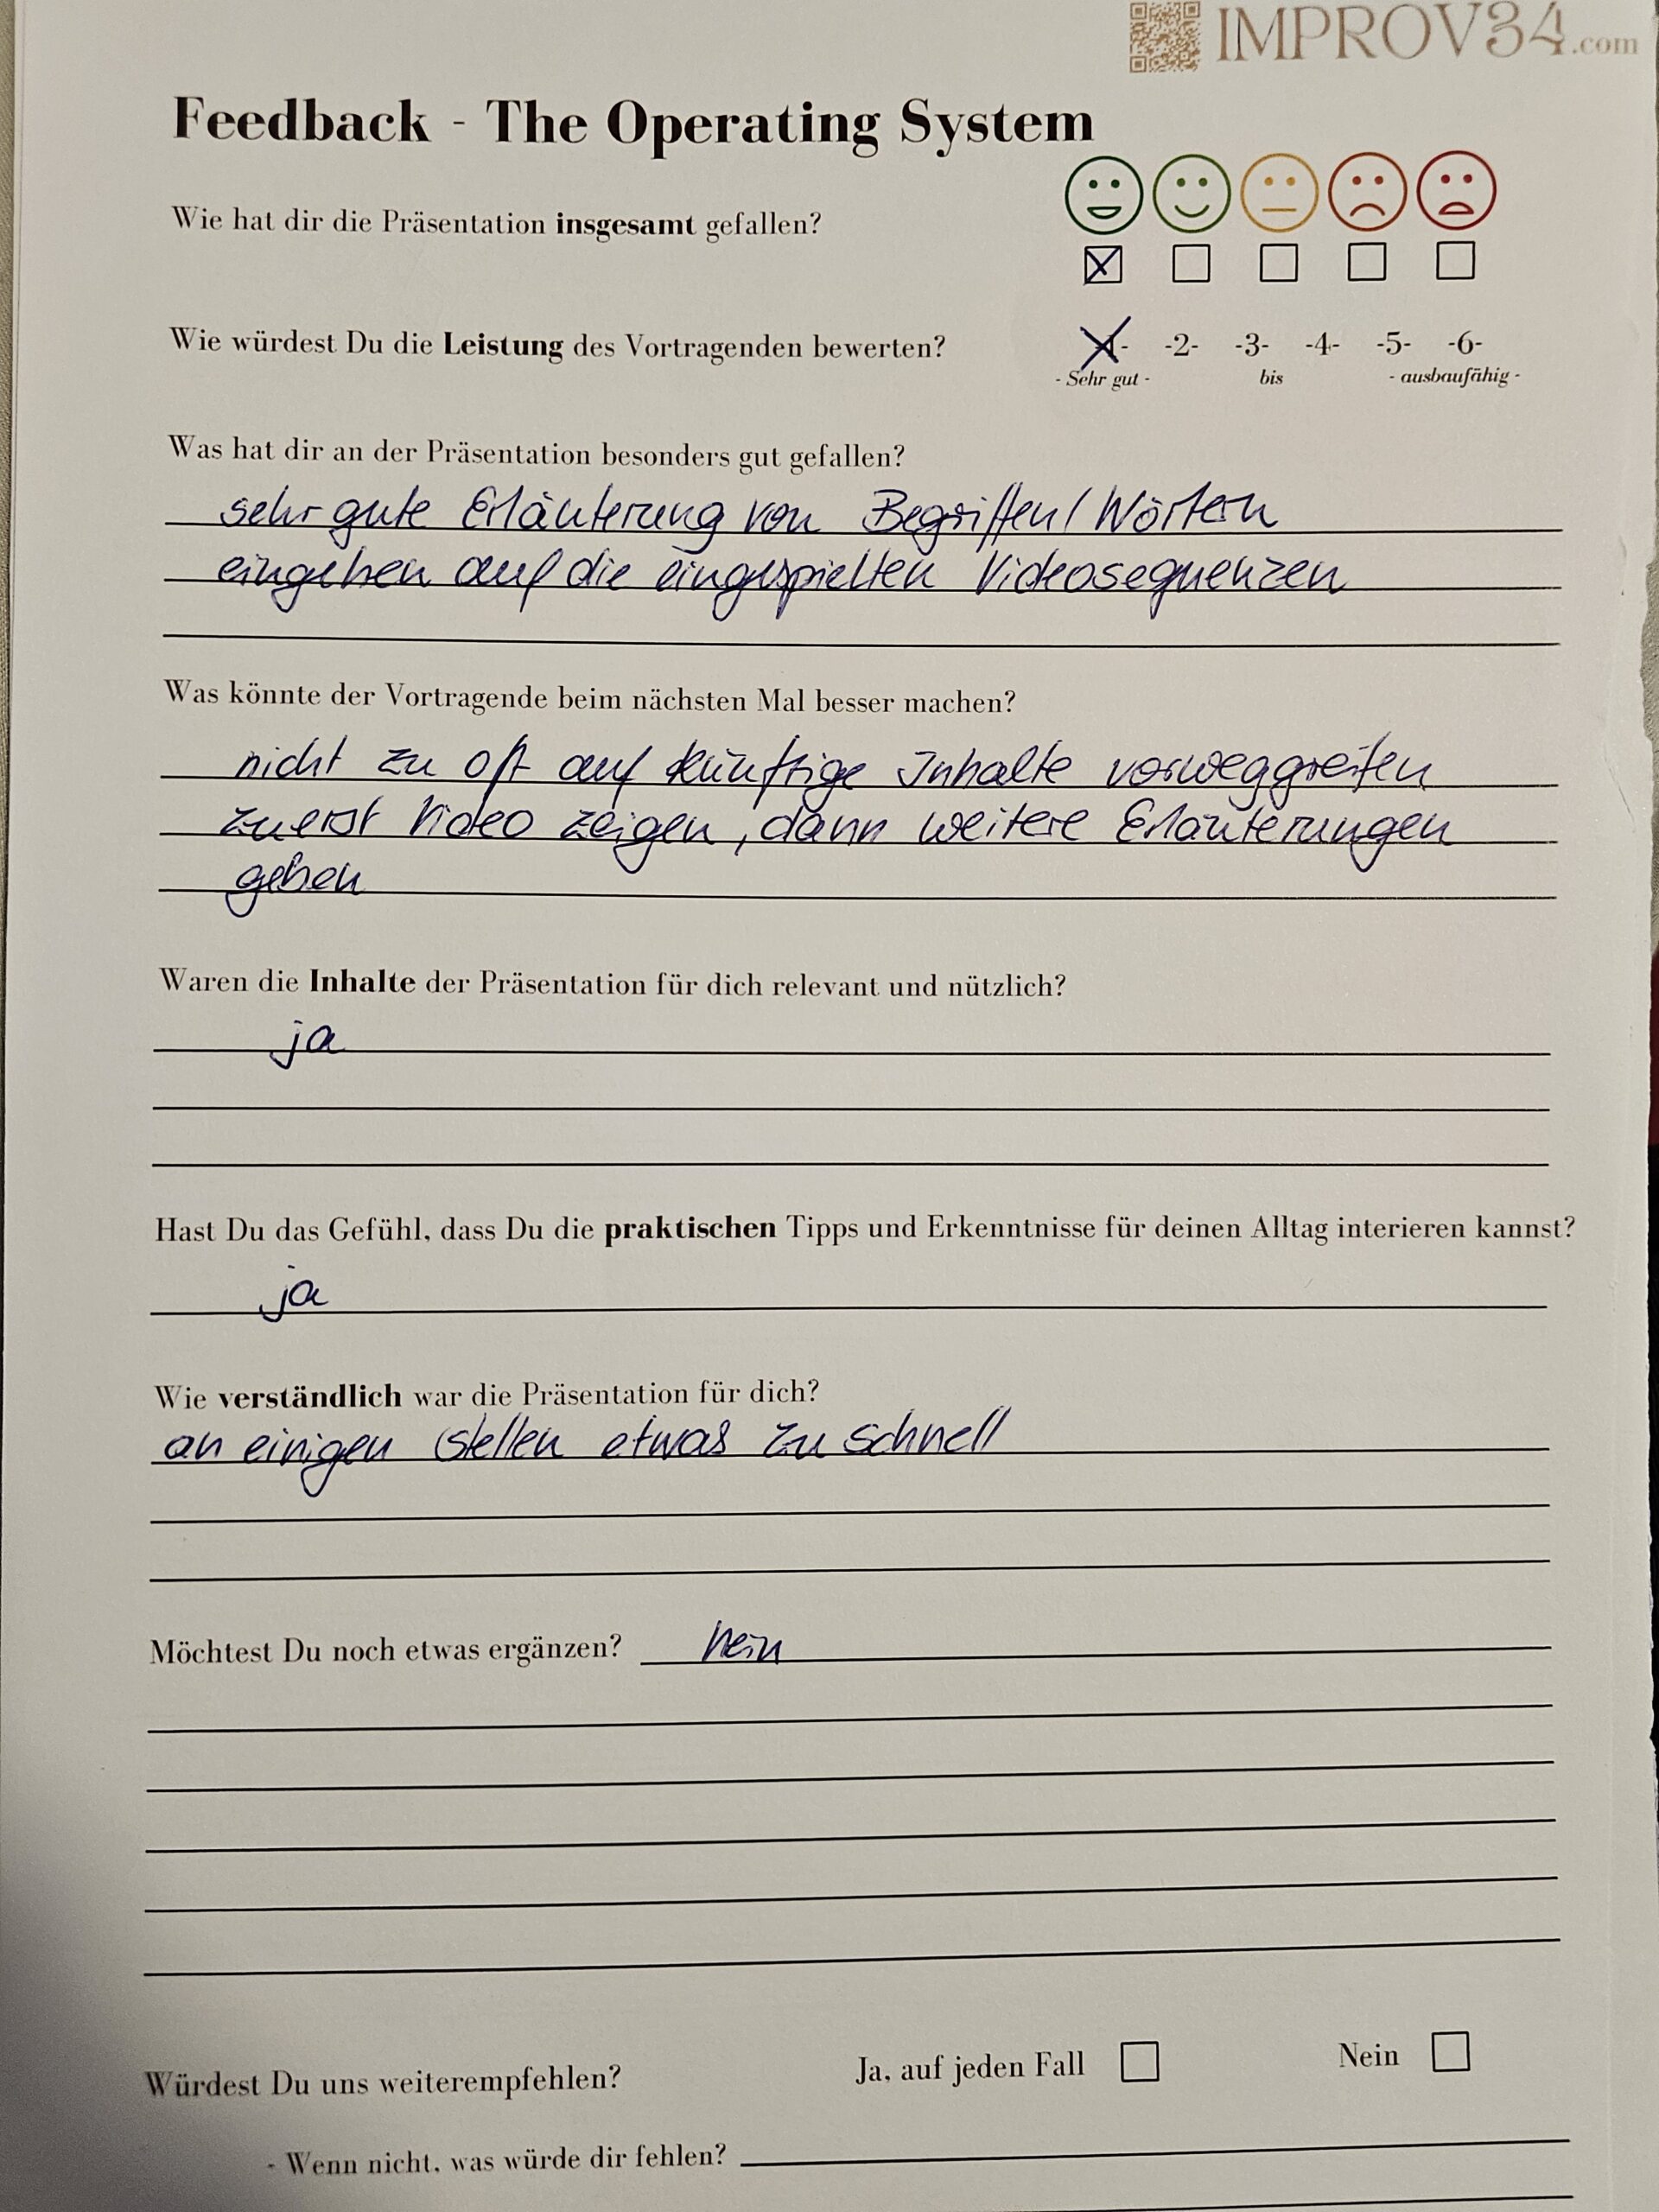 IMPROV34.com
Feedback - The Operating System
Wie hat dir die Präsentation insgesamt gefallen?
Wie würdest Du die Leistung des Vortragenden bewerten? -1- -2- -3- -4- -5- -6-
- Sehr gut - bis - ausbaufähig -
Was hat dir an der Präsentation besonders gut gefallen?
sehr gute Erläuterung von Begriffen / Wörtern
eingehen auf die eingespielten Videosequenzen
Was könnte der Vortragende beim nächsten Mal besser machen?
nicht zu oft auf künftige Inhalte vorweggreifen
zuerst Video zeigen, dann weitere Erläuterungen
geben
Waren die Inhalte der Präsentation für dich relevant und nützlich?
ja
Hast Du das Gefühl, dass Du die praktischen Tipps und Erkenntnisse für deinen Alltag interieren kannst?
ja
Wie verständlich war die Präsentation für dich?
an einigen Stellen etwas zu schnell
Möchtest Du noch etwas ergänzen? nein
Würdest Du uns weiterempfehlen? Ja, auf jeden Fall Nein
- Wenn nicht, was würde dir fehlen?